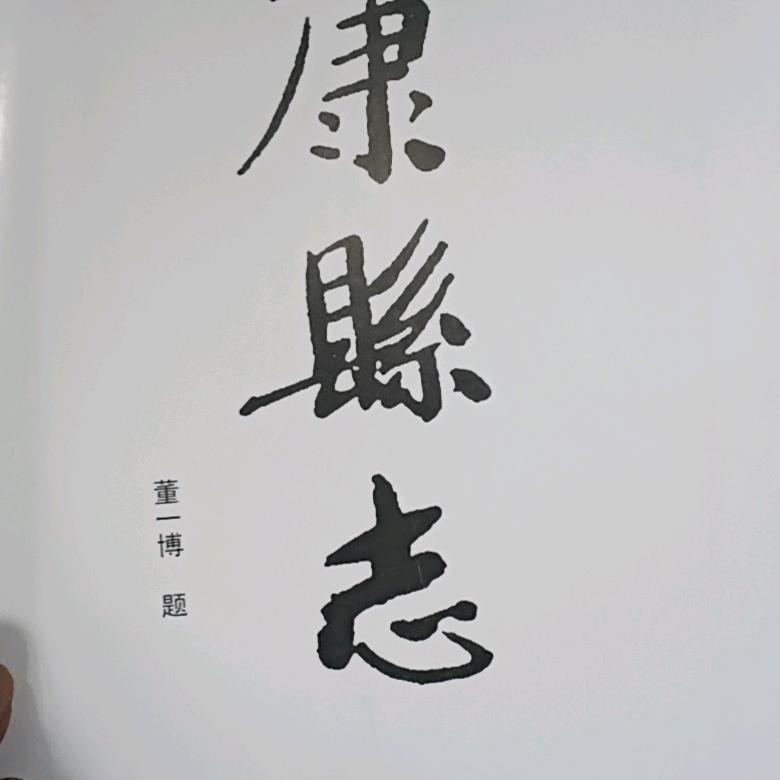 康縣志
董一博 题